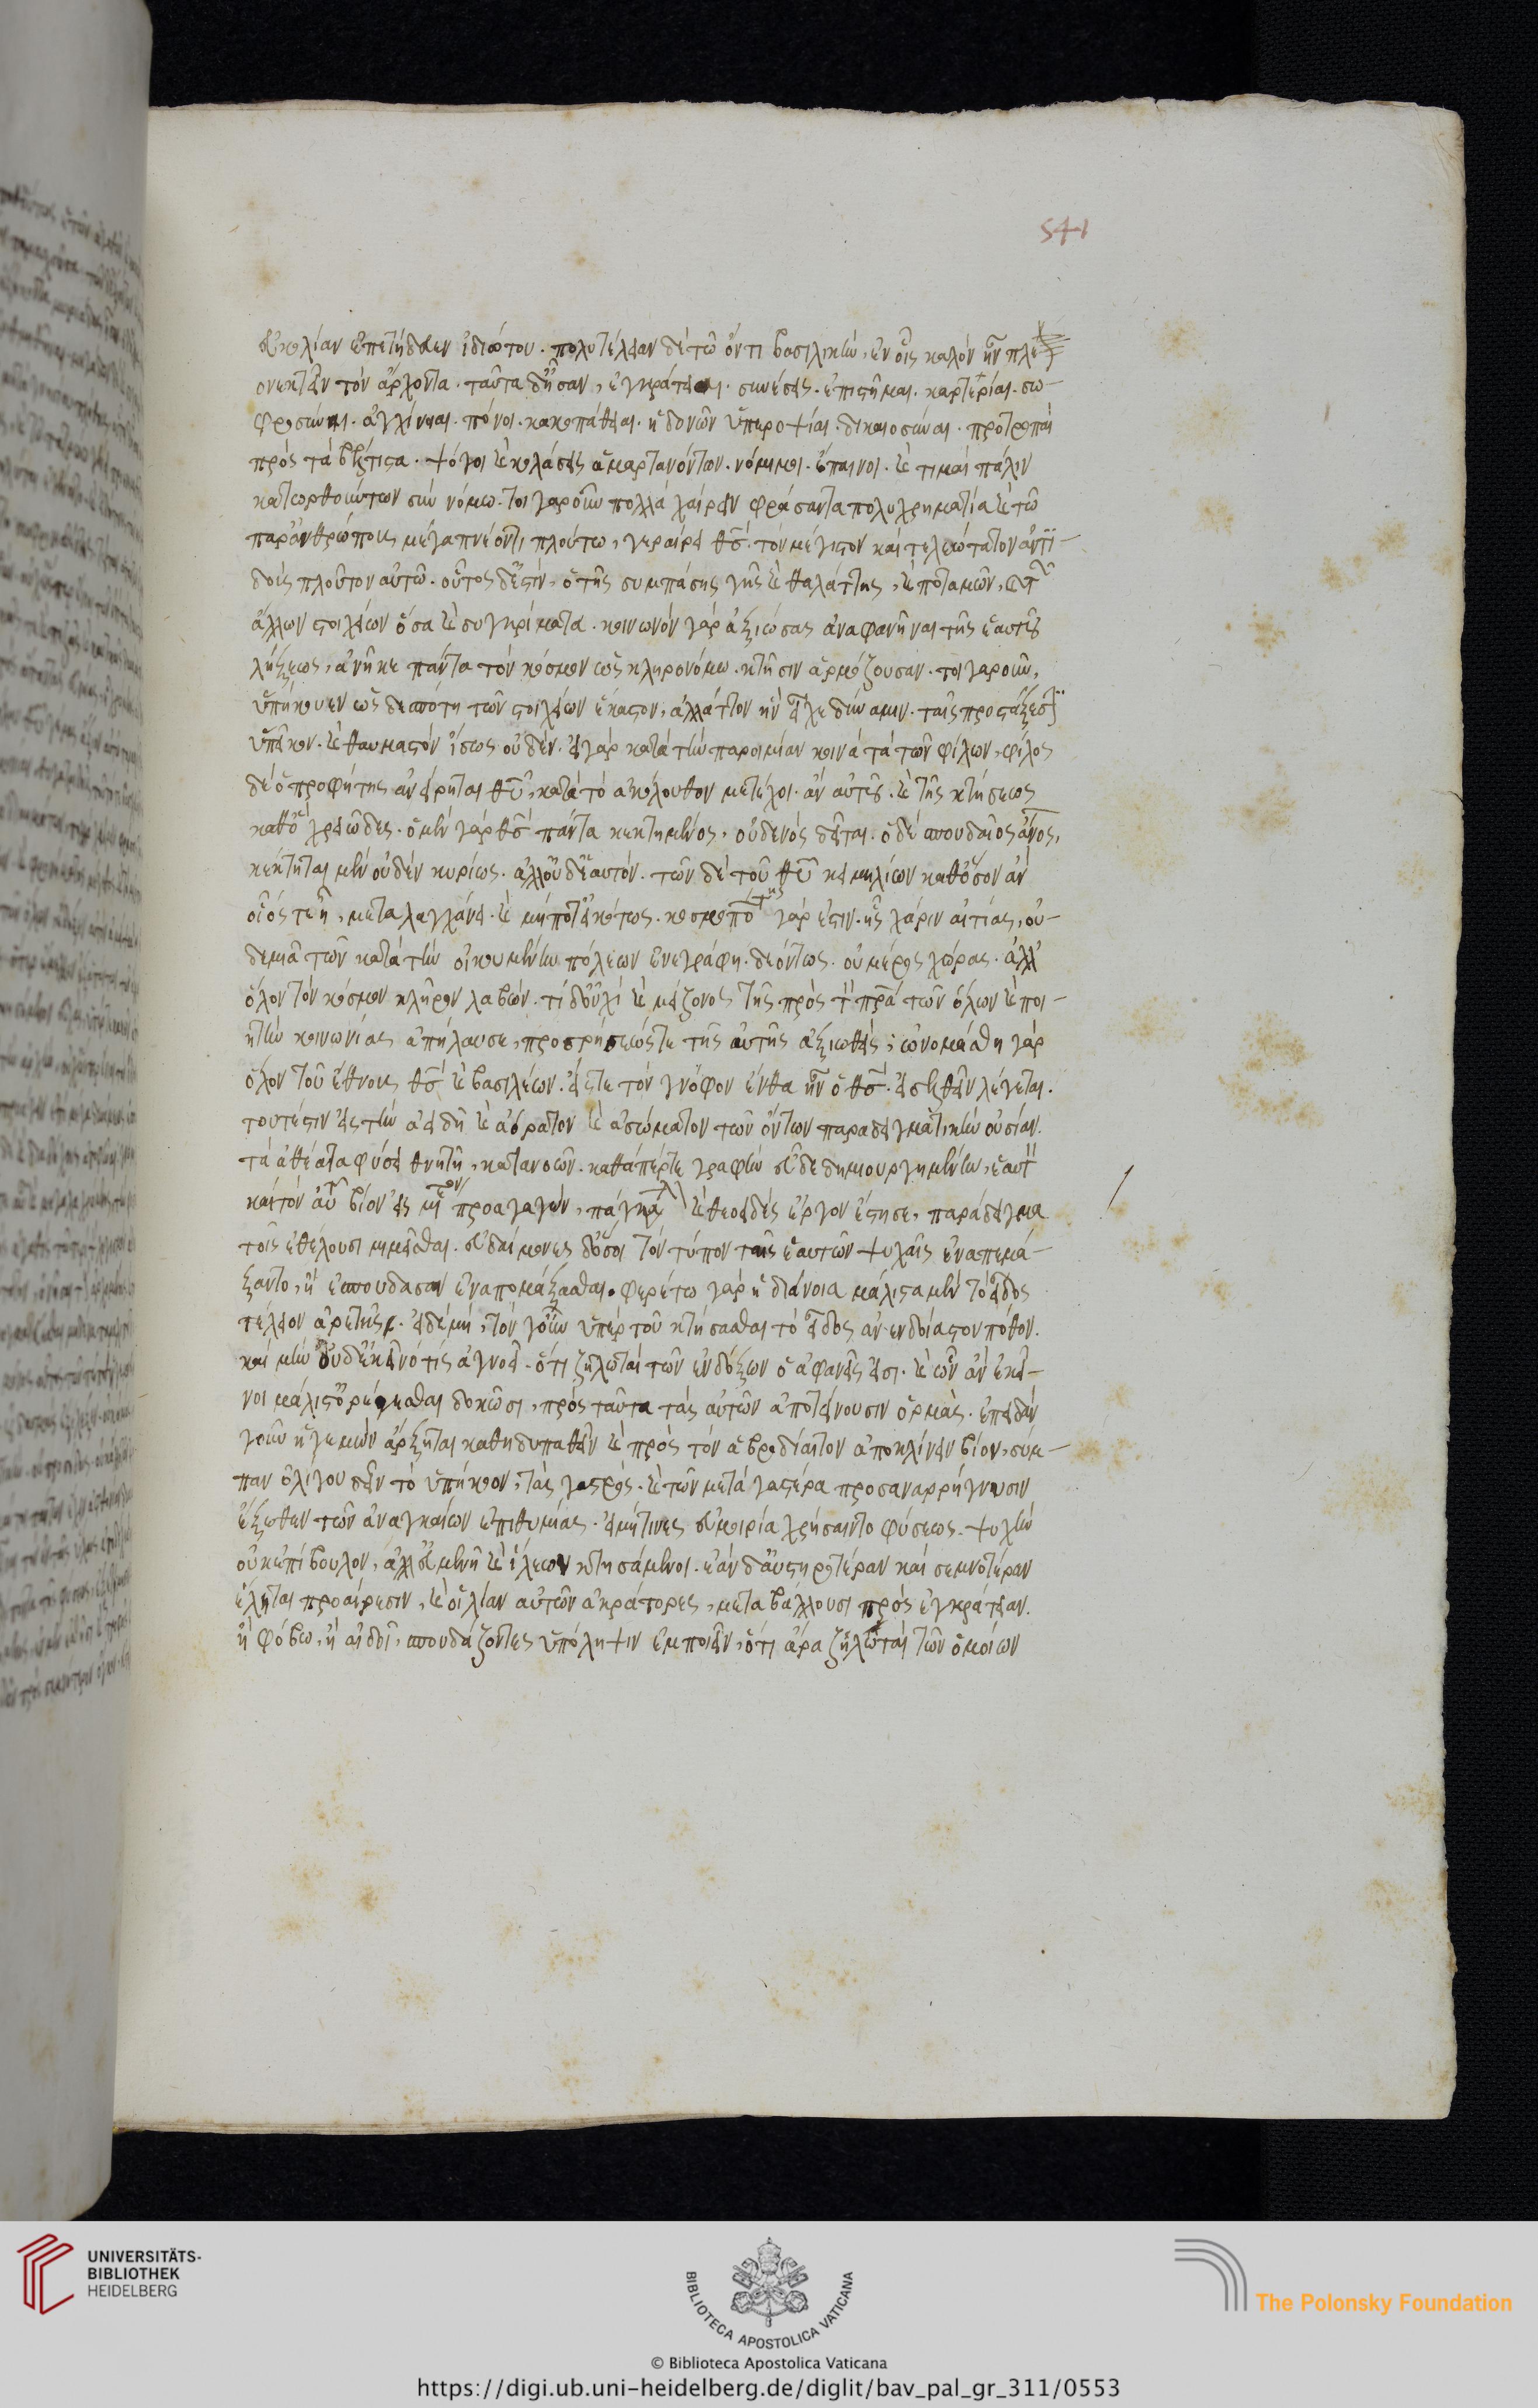 541
εὐκολίαν ἐπετήδευεν ἰδιώτου. πολυτέλειαν δὲ τῶ ὄντι βασιλικὴν, ἐν οἷς καλὸν ἦν πλε
ονεκτεῖν τὸν ἄρχοντα. ταῦτα δ' ἦσαν, ἐγκράτειαι. συνέσεις. ἐπιστῆμαι. καρτερίαι. σω-
φροσύναι. ἀγχίνοιαι. πόνοι. κακοπάθειαι. ἡδονῶν ὑπεροψίαι. δικαιοσύναι. προτροπαὶ
πρὸς τὰ βέλτιστα. ψόγοι καὶ κολάσεις ἁμαρτανόντων. νόμιμοι. ἔπαινοι. καὶ τιμαὶ πάλιν
κατωρθούντων σὺν νόμω. τοιγαροῦν πολλὰ χαίρειν φράσαντα πολυχρηματία καὶ τῶ
παρ' ἀνθρώποις μέγα πνέοντι πλούτω, γεραίρει θς. τὸν μέγιστον καὶ τελεώτατον ἀντι-
δοὺς πλοῦτον αὐτῶ. οὗτος δ' ἐστὶν, ὁ τῆς συμπάσης γῆς καὶ θαλάττης, καὶ ποταμῶν, καὶ τῶν
ἄλλων στοιχείων ὅσα καὶ συγκρίματα. κοινωνὸν γὰρ ἀξιώσας ἀναφανῆναι τῆς ἑαυτοῦ
λήξεως, ἀνῆκε πάντα τὸν κόσμον ὡς κληρονόμω. κτῆσιν ἁρμόζουσαν. τοιγαροῦν,
ὑπήκουεν ὡς δεσπότη τῶν στοιχείων ἕκαστον, ἀλλάττον ἣν εἶχε δύναμιν. ταῖς προστάξεσι
ὑπεῖκον. καὶ θαυμαστὸν ἴσως οὐδέν. εἰ γὰρ κατὰ τὴν παροιμίαν κοινὰ τὰ τῶν φίλων, φίλος
δὲ ὁ προφήτης ἀνείρηται θυ, κατὰ τὸ ἀκόλουθον μετέχοι. ἂν αὐτοῦ. καὶ τῆς κτήσεως
καθ' ὃ χρειῶδες. ὁ μὲν γὰρ θς πάντα κεκτημένος, οὐδενὸς δεῖται. ὁ δὲ σπουδαῖος ἄνος,
κέκτηται μὲν οὐδὲν κυρίως. ἀλλ' οὐδ' ἑαυτόν. τῶν δὲ τοῦ θυ κειμηλίων καθ' ὅσον ἂν
οἷός τε ἦ, μεταλαγχάνει. καὶ μήποτ' εἰκότως. κοσμοπολίτης γάρ ἐστιν. ἧς χάριν αἰτίας, οὐ-
δεμιᾶ τῶν κατὰ τὴν οἰκουμένην πόλεων ἐνεγράφη. δεόντως. οὐ μέρος χώρας. ἀλλ'
ὅλον τὸν κόσμον κλῆρον λαβών. τί δ' οὐχὶ καὶ μείζονος τῆς πρὸς τὸν πρα τῶν ὅλων καὶ ποι-
ητὴν κοινωνίας ἀπήλαυσε, προσρήσεώς τε τῆς αὐτῆς ἀξιωθείς; ὠνομάσθη γὰρ
ὅλου τοῦ ἔθνους θς καὶ βασιλέων. εἴς τε τὸν γνόφον ἔνθα ἦν ὁ θς. εἰσελθεῖν λέγεται.
τουτέστιν εἰς τὴν ἀειδῆ καὶ ἀόρατον καὶ ἀσώματον τῶν ὄντων παραδειγματικὴν οὐσίαν.
τὰ ἀθέατα φύσει θνητῆ, κατανοῶν. καθάπερ τε γραφὴν εὖ δεδημιουργημένην, ἑαυτὸν
καὶ τὸν αὑτοῦ βίον εἰς μέσον προαγαγὼν, πάγκαλον καὶ θεοειδὲς ἔργον ἔστησε, παράδειγμα
τοῖς ἐθέλουσι μιμεῖσθαι. εὐδαίμονες δ' ὅσοι τὸν τύπον ταῖς ἑαυτῶν ψυχαῖς ἐναπεμά-
ξαντο, ἢ ἐσπούδασαν ἐναπομάξασθαι. φερέτω γὰρ ἡ διάνοια μάλιστα μὲν τὸ εἶδος
τέλειον ἀρετῆς. εἰ δὲ μὴ, τὸν γοῦν ὑπὲρ τοῦ κτήσασθαι τὸ εἶδος ἀνενδοίαστον πόθον.
καὶ μὴν οὐδ' ἐκεῖνό τις ἀγνοεῖ. ὅτι ζηλωταὶ τῶν ἐνδόξων οἱ ἀφανεῖς εἰσι. καὶ ὧν ἂν ἐκεῖ-
νοι μάλιστ' ὀρέγεσθαι δοκῶσι, πρὸς ταῦτα τὰς αὑτῶν ἀποτείνουσιν ὁρμάς. ἐπειδὰν
γοῦν ἡγεμὼν ἄρξηται καθηδυπαθεῖν καὶ πρὸς τὸν ἁβροδίαιτον ἀποκλίνειν βίον, σύμ-
παν ὀλίγου δεῖν τὸ ὑπήκοον, τὰς γαστρὸς. καὶ τῶν μετὰ γαστέρα προσαναρρήγνυσιν
ἔξωθεν τῶν ἀναγκαίων ἐπιθυμίας. εἰ μή τινες εὐμοιρία χρήσαιντο φύσεως. ψυχὴν
οὐκ ἐπίβουλον, ἀλλ' εὐμενῆ καὶ ἵλεων κτησάμενοι. ἐὰν δ' αὐστηροτέραν καὶ σεμνοτέραν
ἕληται προαίρεσιν, καὶ οἱ λίαν αὐτῶν ἀκράτορες, μεταβάλλουσι πρὸς ἐγκράτειαν.
ἢ φόβω, ἢ αἰδοῖ, σπουδάζοντες ὑπόληψιν ἐμποιεῖν, ὅτι ἄρα ζηλωταὶ τῶν ὁμοίων
UNIVERSITÄTS-
BIBLIOTHEK
HEIDELBERG
BIBLIOTECA APOSTOLICA VATICANA
The Polonsky Foundation
© Biblioteca Apostolica Vaticana
https://digi.ub.uni-heidelberg.de/diglit/bav_pal_gr_311/0553